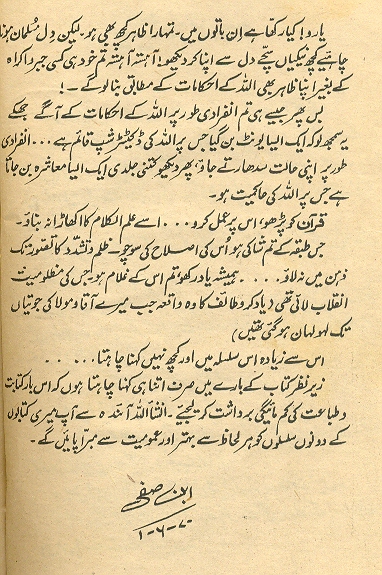 یارو! کیا رکھا ہے اِن باتوں میں۔ تمہارا ظاہر کچھ بھی ہو۔ لیکن دل مُسلمان ہونا
چاہئے کچھ نیکیاں سچّے دل سے اپنا کر دیکھو! آہستہ آہستہ تم خود ہی کسی جبر و اکراہ
کے بغیر اپنا ظاہر بھی اللہ کے احکامات کے مطابق بنا لو گے۔!
بس پھر جیسے ہی تم انفرادی طور پر اللہ کے احکامات کے آگے جھکے
یہ سمجھ لو کہ ایک ایسا یونٹ بن گیا جس پر اللہ کی ڈکٹیٹرشپ قائم ہے... انفرادی
طور پر اپنی حالت سدھارتے جاؤ، پھر دیکھو کتنی جلدی ایک ایسا معاشرہ بن جاتا
ہے جس پر اللہ کی حاکمیت ہو۔
قرآن کو پڑھو، اس پر عمل کرو... اسے علم الکلام کا اکھاڑا نہ بناؤ۔
جس طبقہ کے تم شاکی ہو اُس کی اصلاح کی سوچو۔ ظلم و تشدّد کا تصوّر تک
ذہن میں نہ لاؤ.... ہمیشہ یاد رکھو تم اس کے غلام ہو۔ جس کی مظلومیت
انقلاب لائی تھی (یاد کرو طائف کا وہ واقعہ جب میرے آقا و مولا کی جوتیاں
تک لہولہان ہو گئی تھیں)
اس سے زیادہ اس سلسلہ میں اور کچھ نہیں کہنا چاہتا......
زیرِ نظر کتاب کے بارے میں صرف اتنا ہی کہنا چاہتا ہوں کہ اس بار کتابت
و طباعت کی کم مائیگی برداشت کر لیجیے۔ انشاءاللہ آئندہ سے آپ میری کتابوں
کے دونوں سلسلوں کو ہر لحاظ سے بہتر اور عمومیت سے مبرّا پائیں گے۔
ابن صفی
۱-۶-۷۰